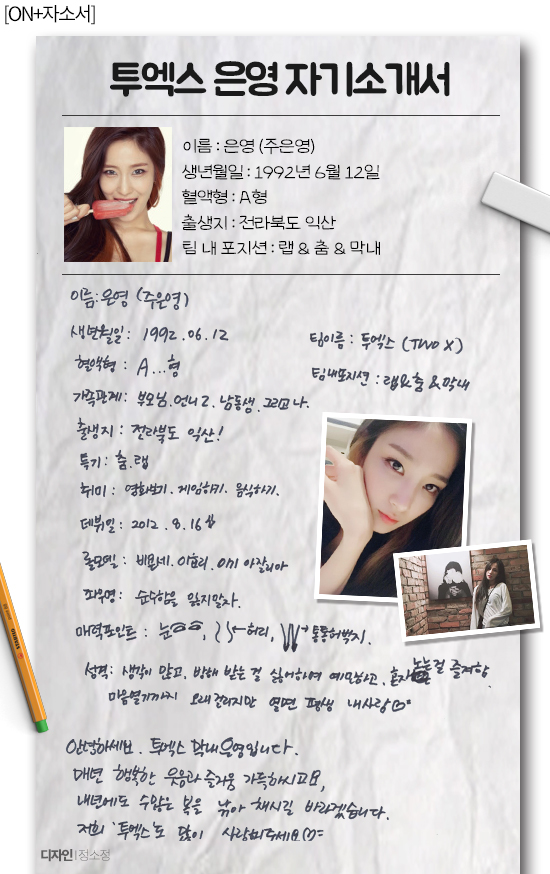 [ON+자소서]
투엑스 은영 자기소개서
이름 : 은영 (주은영)
생년월일 : 1992년 6월 12일
혈액형 : A형
출생지 : 전라북도 익산
팀 내 포지션 : 랩 & 춤 & 막내
이름: 은영 (주은영)
생년월일: 1992.06.12
팀이름 : 투엑스 (TWO X)
혈액형 : A...형
팀내포지션 : 랩&춤&막내
가족관계: 부모님.언니2.남동생.그리고 나.
출생지 : 전라북도 익산!
특기 : 춤.랩
취미 : 영화보기. 게임하기. 음식하기.
데뷔일 : 2012.8.16
롤모델 : 비욘세. 이효리. 이기 아잘리아
좌우명 : 순수함을 잃지말자.
매력포인트 : 눈, ←허리, → 통통허벅지.
성격: 생각이 많고, 방해 받는 걸 싫어하며 예민하고, 혼자 노는걸 즐겨함.
마음열기까지 오래걸리지만 열면 평생 내사랑
안녕하세요. 투엑스 막내 은영입니다.
매년 행복한 웃음과 즐거움 가득하시고요,
내년에도 수많은 복을 낚아 채시길 바라겠습니다.
저희 '투엑스'도 많이 사랑해주세요
디자인 | 정소정